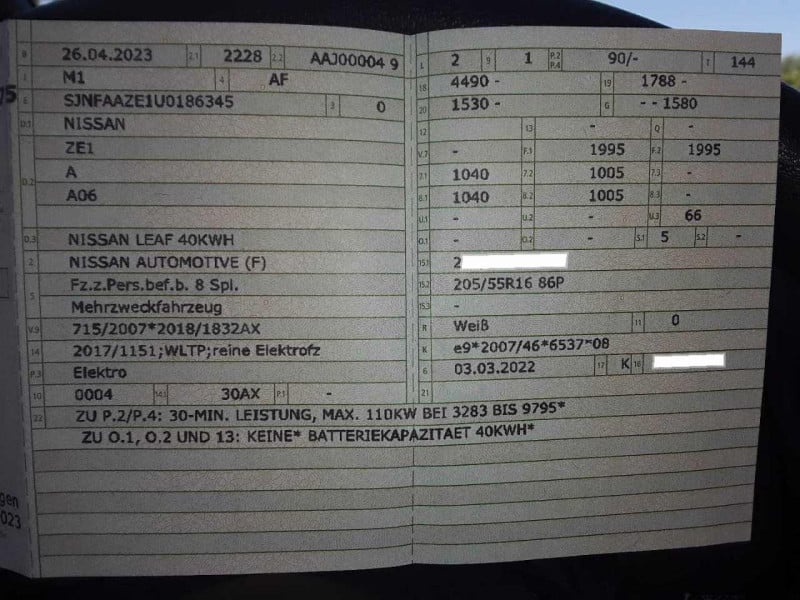 B 26.04.2023 2.1 2228 2.2 AAJ00004 9
J M1 4 AF
E SJNFAAZE1U0186345 3 0
D.1 NISSAN
ZE1
D.2 A
A06
D.3 NISSAN LEAF 40KWH
2 NISSAN AUTOMOTIVE (F)
5 Fz.z.Pers.bef.b. 8 Spl.
Mehrzweckfahrzeug
V.9 715/2007*2018/1832AX
14 2017/1151;WLTP;reine Elektrofz
P.3 Elektro
10 0004 14.1 30AX P.1 -
L 2 9 1 P.2 P.4 90/- T 144
18 4490 - 19 1788 -
20 1530 - G - - 1580
12 - 13 - Q -
V.7 - F.1 1995 F.2 1995
7.1 1040 7.2 1005 7.3 -
8.1 1040 8.2 1005 8.3 -
U.1 - U.2 - U.3 66
O.1 - O.2 - S.1 5 S.2 -
15.1 2
15.2 205/55R16 86P
15.3 -
R Weiß 11 0
K e9*2007/46*6537*08
6 03.03.2022 17 K 16
21
22 ZU P.2/P.4: 30-MIN. LEISTUNG, MAX. 110KW BEI 3283 BIS 9795*
ZU O.1, O.2 UND 13: KEINE* BATTERIEKAPAZITAET 40KWH*
gen
023